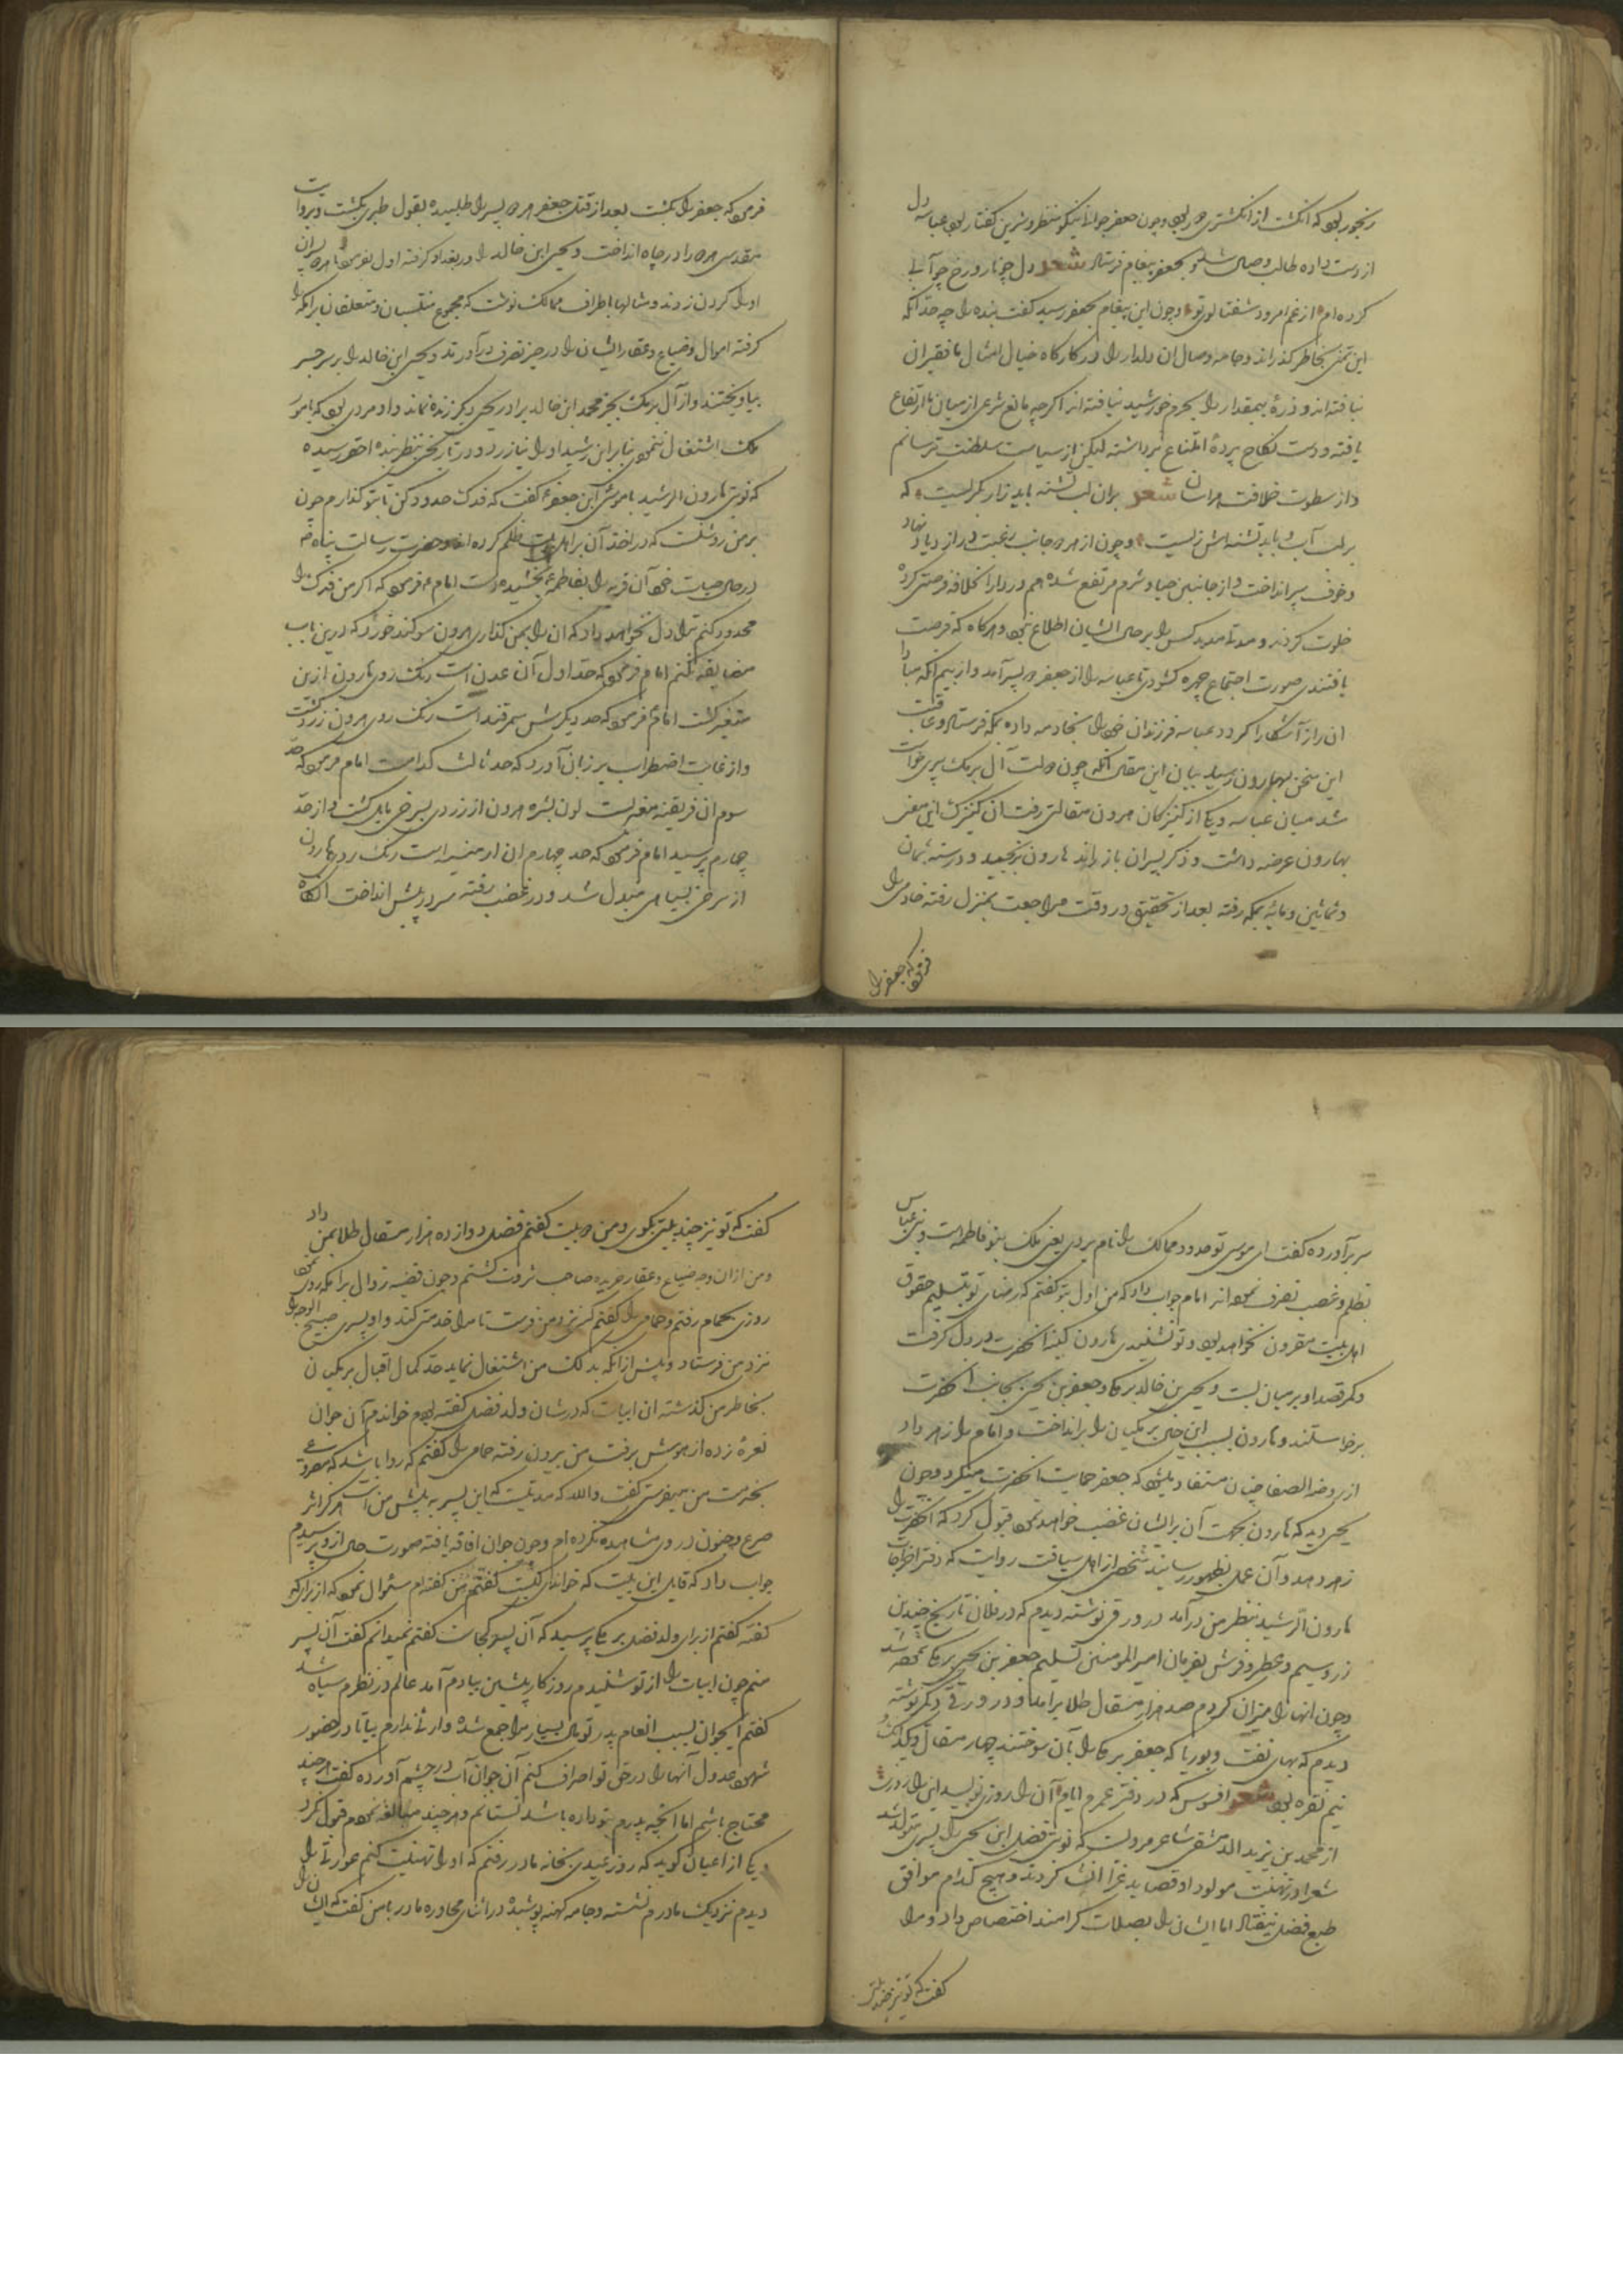 رنجور بود که انگشت از انگشتری دور بود و چون جعفر جوانی نیکو منظر و شیرین گفتار بود عباسه دل
از دست داده طالب وصال شد و بجعفر پیغام فرستاد شعر دل چو نار و رخ چو آبی
کرده ام از غم امرود شفتالوی تو و چون این پیغام بجعفر رسید گفت بنده را چه حد آنکه
این تمنی بخاطر گذراند و جامه وصال ان دلدار را در کارگاه خیال امثال ما فقیران
نبافته اند و ذرهٔ بیمقدار را بحرم خورشید نیافته اند اگر چه مانع شرعی از میان ما ارتفاع
یافته و دست نکاح پردهٔ امتناع برداشته لیکن از سیاست سلطنت ترسانم
و از سطوت خلافت هراسان شعر بران لب تشنه باید زار بگریست که
بر لب آب و باید تشنه اش زیست و چون از هر دو جانب رغبت در ازدیاد نهاد
و خوف سپر انداخت و از جانبین حیا و شرم مرتفع شده هم در دار الخلافه فرصتی کرده
خلوت کردند و مدتی مدید کس را بر حال ایشان اطلاع نبود و هر گاه که فرصت
یافتندی صورت اجتماع چهره گشودی تا عباسه را از جعفر دو پسر آمد و از بیم آنکه مبادا
ان راز آشکارا گردد عباسه فرزندان خود را بخادمه داده بمکه فرستاد و عاقبت
این سخن بهارون رسید بیان این مقال آنکه چون دولت آل برمک سپری خواست
شد میان عباسه و یکی از کنیزکان هرون مقالتی رفت ان کنیزک این معنی
بهارون عرضه داشت و ذکر پسران باز راند هارون برنجید و در سنه ثمان
و ثمانین و مائه بمکه رفته بعد از تحقیق در وقت مراجعت بمنزل رفته خادمی را
فرمود که جعفر را
فرمود که جعفر را بکشت بعد از قتل جعفر هر دو پسر را طلبیده بقول طبری بکشت و بروایت
مقدسی هر دو را در چاه انداخت و یحیی ابن خالد را در بغداد گرفته اول بفرمود تا هر دو پسران
او را گردن زدند و مثالها باطراف ممالک نوشت که مجموع منتسبان و متعلقان برامکه را
گرفته اموال و ضیاع و عقار ایشان را در حیز تصرف درآوردند و یحیی ابن خالد را بر سر جسر
بیاویختند و از آل برمک بجز محمد ابن خالد برادر یحیی دیگر زنده نماند و او مردی بود که بامور
ملک اشتغال ننمودی بنابر این رشید او را نیازرد و در تاریخی بنظر بنده احقر رسیده
که نوبتی هارون الرشید با موسی ابن جعفر گفت که فدک حدود کن تا بتو گذارم چون
بر من روشنست که در اخذ آن بر اهل بیت ظلم کرده اند و حضرت رسالت پناه
در حال حیات خود آن قریه را بفاطمه بخشیده است امام فرمود که اگر من فدک را
محدود کنم ترا دل نخواهد داد که ان را بمن گذاری هرون سوگند خورد که درین باب
مضایقه نکنم امام فرمود که حد اول آن عدن است رنگ روی هارون ازین
متغیر گشت امام فرمود که حد دیگرش سمرقند است رنگ روی هرون زرد گشت
و از غایت اضطراب بر زبان آورد که حد ثالث کدامست امام فرمود که حد
سوم ان افریقیه مغربست لون بشره هرون از زردی بسرخی مایل گشت و از حد
چهارم پرسید امام فرمود که حد چهارم ان ارمنیه است رنگ روی هارون
از سرخی بسیاهی مبدل شد و در غضب رفته سر در پیش انداخت انگاه
سر برآورده گفت ای موسی تو حدود ممالک ما را نام بردی یعنی ملک بنو فاطمه است و بنی عباس
بظلم و غصب تصرف نموده اند امام جواب داد که من اول بتو گفتم که رضای تو بتسلیم حقوق
اهل بیت مقرون نخواهد بود و تو نشنیدی هارون کینه آنحضرت در دل گرفت
و کمر قصد او بر میان بست و یحیی بن خالد برمکی و جعفر بن یحیی بجانب آنحضرت
برخواستند و هارون بسبب این خیال برمکیان را برانداخت و امام را زهر داد
از روضه الصفا چنان مستفاد میشود که جعفر حمایت آنحضرت میکرد و چون
یحیی دید که هارون بجهت آن بر ایشان غضب خواهد نمود قبول کرد که آنحضرت را
زهر دهد و آن عمل بظهور رسانید شخصی از اهل سیاقت روایت که دفتر اخراجات
هارون الرشید بنظر من درآمد در ورقی نوشته دیدم که در فلان تاریخ چندین
زر و سیم و عطر و فرش بفرمان امیر المومنین تسلیم جعفر بن یحیی برمکی نموده شد
و چون انها را میزان کردم صد هزار مثقال طلا برامد و در ورقی دیگر نوشته
دیدم که بهای نفت و بوریا که جعفر برمکی را بآن سوختند چهار مثقال و یکدانگ و
نیم نقره بود شعر افسوس که در دفتر عمرم ایام آن را روزی نویسد این را روزیست
از محمد بن یزید الدمشقی شاعر مرویست که نوبتی فضل ابن یحیی را پسری متولد شد
شعرا در تهنیت مولود او قصاید غرا انشا کردند و هیچ کدام موافق
طبع فضل نیفتاد اما ایشان را بصلات گرامند اختصاص داد و مرا
گفت که تو نیز چند بیتی
گفت که تو نیز چند بیتی بگوی و من دو بیت گفتم فضل دوازده هزار مثقال طلا بمن داد
و من از ان وجه ضیاع و عقار خریده صاحب ثروت گشتم و چون قضیه زوال برامکه روی نمود
روزی بحمام رفتم و حمامی را گفتم کسی نزد من فرست تا مرا خدمتی کند و او پسری صبیح الوجه را
نزد من فرستاد و پیش از انکه بدلک من اشتغال نماید حد کمال اقبال برمکیان
بخاطر من گذشته ان ابیات که در شان ولد فضل گفته بودم خواندم آن جوان
نعرهٔ زده از هوش برفت من بیرون رفته حمامی را گفتم که روا باشد که مصروعی
بخدمت من میفرستی گفت والله که مدتیست که این پسر پیش من است هرگز اثر
صرع و جنون در وی مشاهده نکرده ام و چون جوان افاقه یافته صورت حال از و پرسیدم
جواب داد که قایل این بیت که خواندی کیست گفتم من گفته ام سئوال نمود که از برای که
گفته گفتم از برای ولد فضل برمکی پرسید که آن پسر کجاست گفتم نمیدانم گفت آن پسر
منم چون ابیات را از تو شنیدم روزگار پیشین بیادم آمد عالم در نظرم سیاه شد
گفتم ایجوان بسبب انعام پدر تو مال بسیار مرا جمع شده وارثی ندارم بیا تا در حضور
شهود عدول آنها را در حق تو اصراف کنم آن جوان آب در چشم آورده گفت هر چند
محتاج باشم اما آنچه پدرم بتو داده باشد نستانم و هر چند مبالغه نمودم قبول نکرد
یکی از اعیان گوید که روز عیدی بخانه مادر رفتم که او را تهنیت کنم عورتی را
دیدم نزدیک مادرم نشسته و جامه کهنه پوشیده در اثنای محاوره مادر بامن گفت که